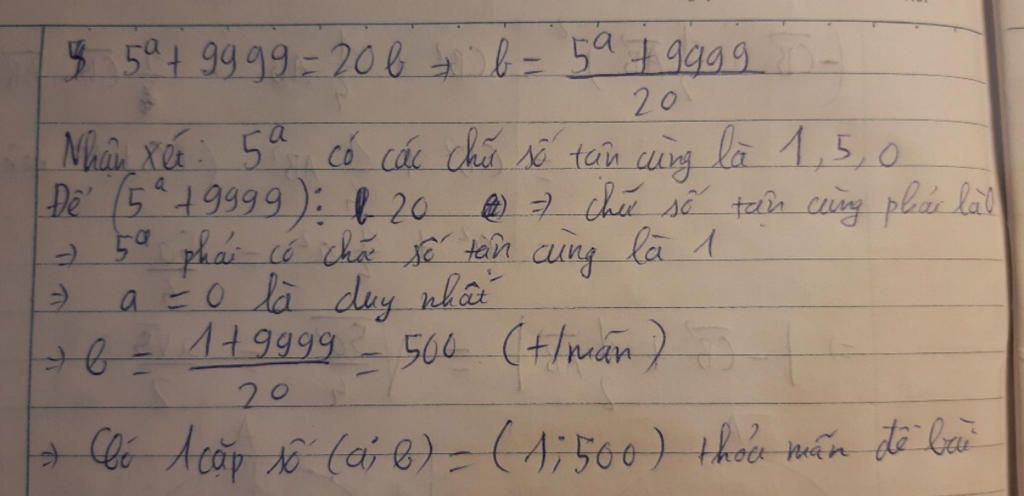 5^a + 9999 = 20b → b = (5^a + 9999)/20
Nhận xét: 5^a có các chữ số tận cùng là 1, 5, 0
Để (5^a + 9999) ⋮ 20 ⇒ chữ số tận cùng phải là 0
⇒ 5^a phải có chữ số tận cùng là 1
⇒ a = 0 là duy nhất
⇒ b = (1 + 9999)/20 = 500 (t/mãn)
⇒ Có 1 cặp số (a; b) = (1; 500) thỏa mãn đề bài